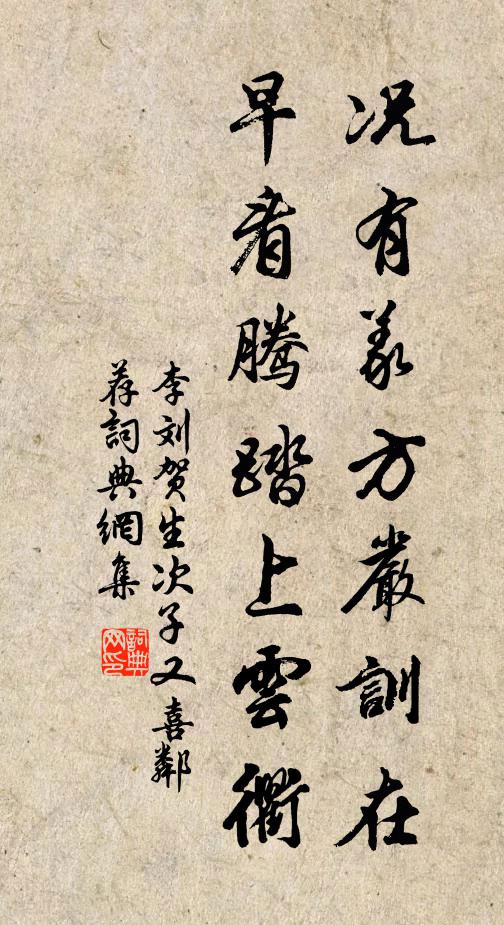 况有義方嚴訓在
早看騰踏上雲衢
李刘贺生次子又喜鄰
荐詞典網集
詞典网印